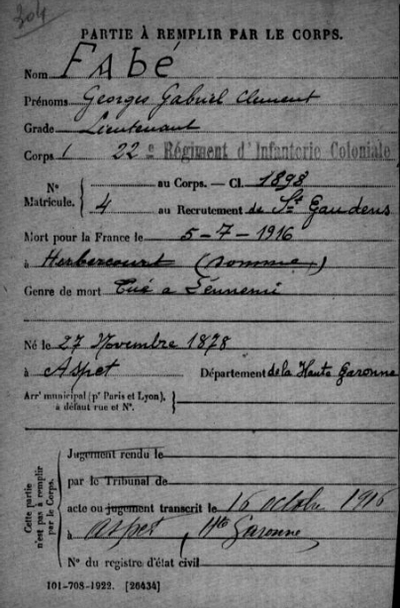 304
PARTIE À REMPLIR PAR LE CORPS.
Nom FAbé
Prénoms Georges Gabriel Clement
Grade Lieutenant
Corps 22e Régiment d'Infanterie Coloniale
N° Matricule. { au Corps. — Cl. 1898
4 au Recrutement de St Gaudens
Mort pour la France le 5-7-1916
à Herbécourt (Somme)
Genre de mort Tué a l'ennemi
Né le 27 Novembre 1878
à Aspet Département de la Haute Garonne
Arrt municipal (pr Paris et Lyon),
à défaut rue et N°.
Cette partie n'est pas à remplir par le Corps.
Jugement rendu le
par le Tribunal de
acte ou jugement transcrit le 16 octobre 1916
à Aspet, Hte Garonne
N° du registre d'état civil
101-708-1922. [26434]